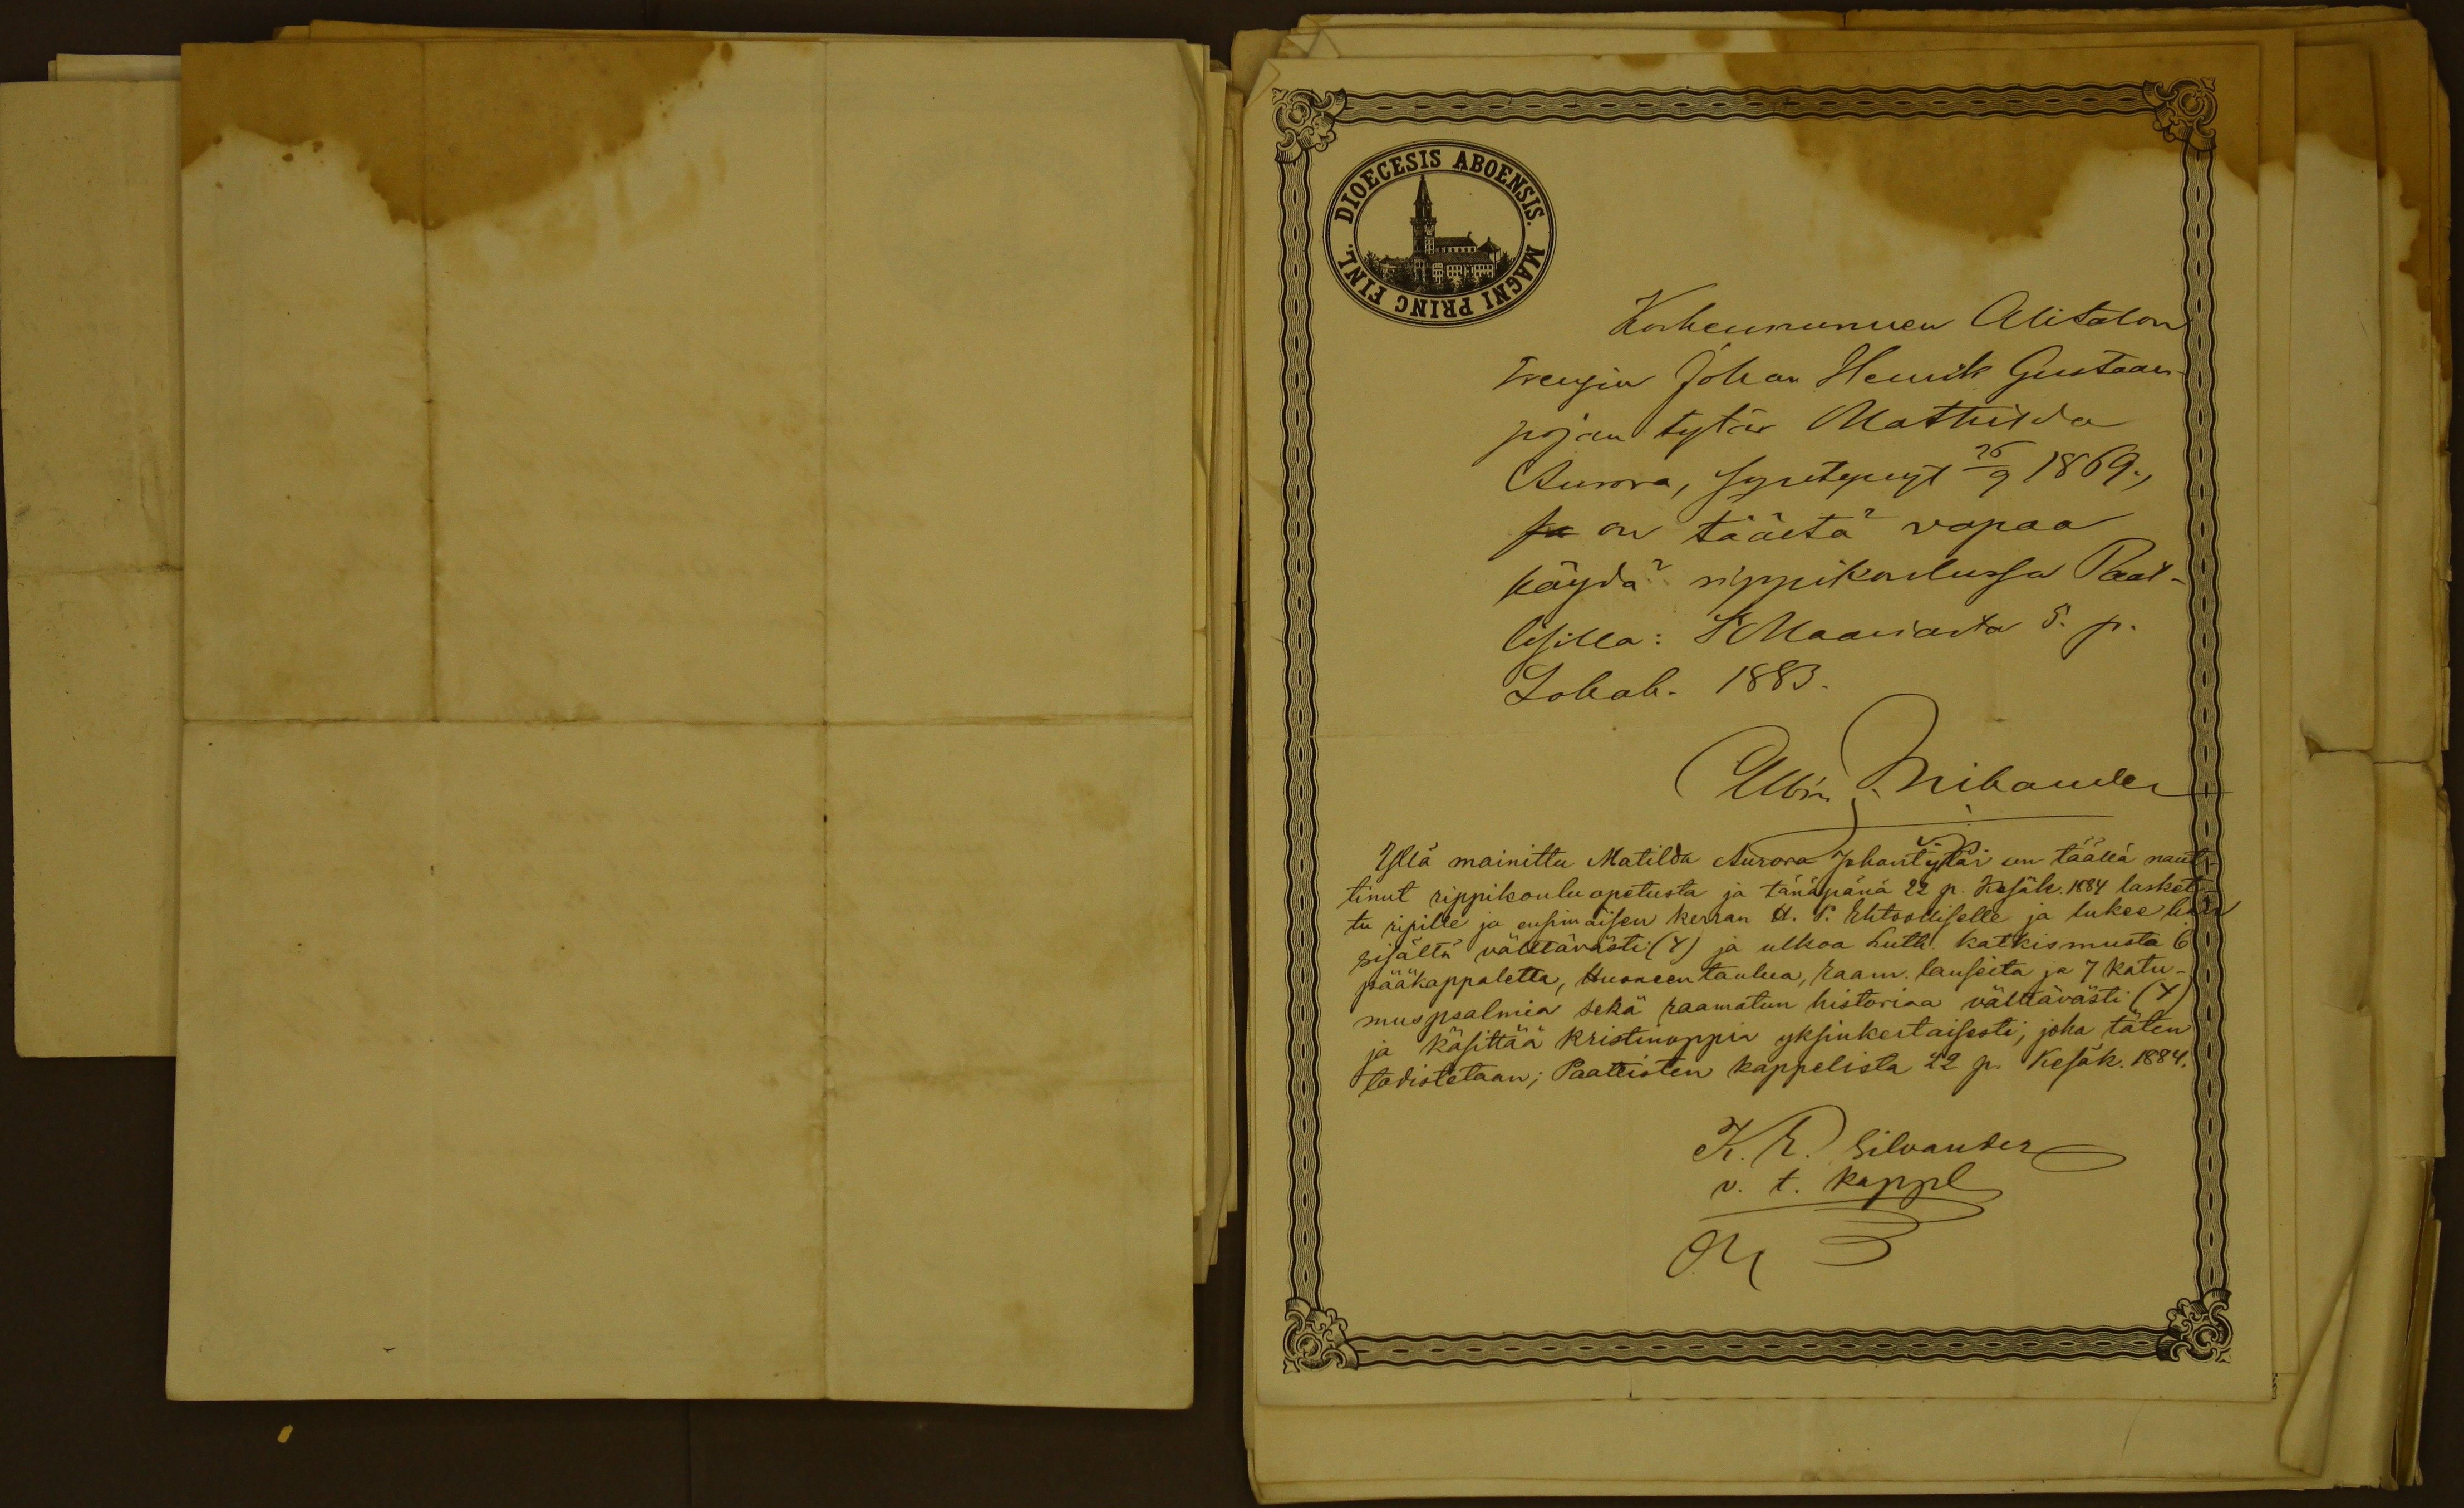 DIOECESIS ABOENSIS. MAGNI PRINC FINL.
Alitalon
rengin Johan Henrik Gustaan-
pojan tytär Mathilda
Aurora, syntynyt 26/9 1869,
on täältä vapaa
käydä rippikoulussa Paat-
lisilla: S:t Maariasta 5. p.
Lokak. 1883.
Albin
Yllä mainittu Matilda Aurora Johantytär on täällä naut-
tinut rippikouluopetusta ja tänäpänä 22 p. Kesäk. 1884 lasket-
tu ripille ja ensimäisen kerran H. P. Ehtoolliselle ja lukee hän
sisältä välttävästi (Y) ja ulkoa Luth. katkismusta 6
pääkappaletta, Huoneentaulua, raam. lauseita ja 7 katu-
muspsalmia sekä raamatun historiaa välttävästi (Y)
ja käsittää kristinoppia yksinkertaisesti; joka täten
todistetaan; Paattisten kappelista 22 p. Kesäk. 1884.
K. E. Silvander
v. t. kappl